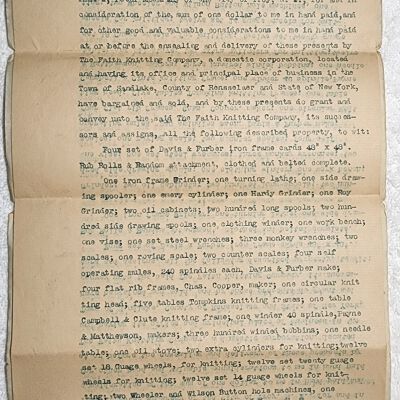 consideration of the, sum of one dollar to me in hand paid,and
for other good and valuable considerations to me in hand paid
at or before the ensealing and delivery of these presents by
The Faith Knitting Company, a domestic corporation, located
and having its office and principal place of business in the
Town of Sandlake, County of Rensselaer and State of New York,
have bargained and sold, and by these presents do grant and
convey unto the said The Faith Knitting Company, its succes-
sors and assigns, all the following described property, to wit:
Four set of Davis & Furber iron frame cards 48" x 48".
Rub Rolls & Random attachment, clothed and belted complete.
One iron frame Grinder; one turning lathe; one side draw-
ing spooler; one emery cylinder; one Hardy Grinder; one Roy
Grinder; two oil cabinets; two hundred long spools; two hun-
dred side drawing spools; one clothing winder; one work bench;
one vise; one set steel wrenches; three monkey wrenches; two
scales; one roving scale; two counter scales; four self
operating mules, 240 spindles each, Davis & Furber make;
four flat rib frames, Chas. Cooper, maker; one circular knit
ting head; five tables Tompkins knitting frames; one table
Campbell & Clute knitting frame; one winder 40 spindle,Payne
& Matthewson, makers; three hundred winder bobbins; one needle
table; one oil stove; two extra cylinders for knitting;twelve
set 18 Guage wheels, for knitting; twelve set twenty guage
wheels for knitting; twelve set 14 guage wheels for knit-
ting; two Wheeler and Wilson Button hole machines, one